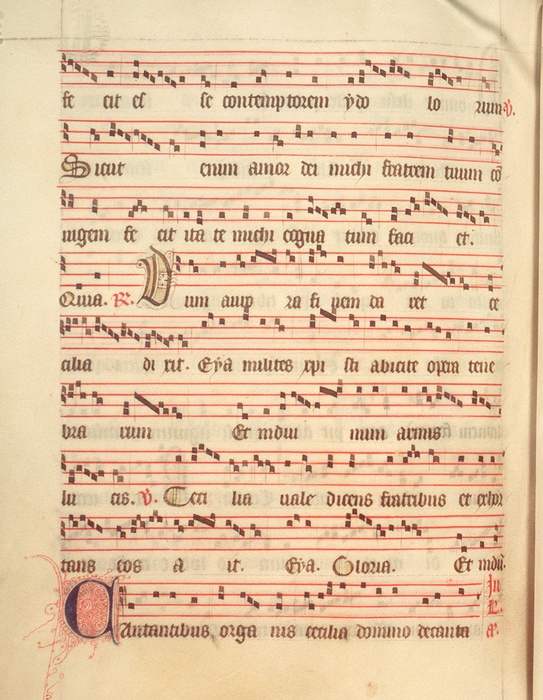 fe cit es se contemptorem ydo lo rum. V.
Sicut enim amor dei michi fratrem tuum cō
iugem fe cit ita te michi cogna tum faci et.
Quia. R. Dum auro ra fi nem da ret ce
cilia di xit. Eya milites xpi sti abicite opera tene
bra rum Et indui mini armis
lu cis. V. Ceci lia uale dicens fratribus et exhor
tans eos a it. Eya. Gloria. Et indui.
Cantantibus orga nis cecilia domino decanta